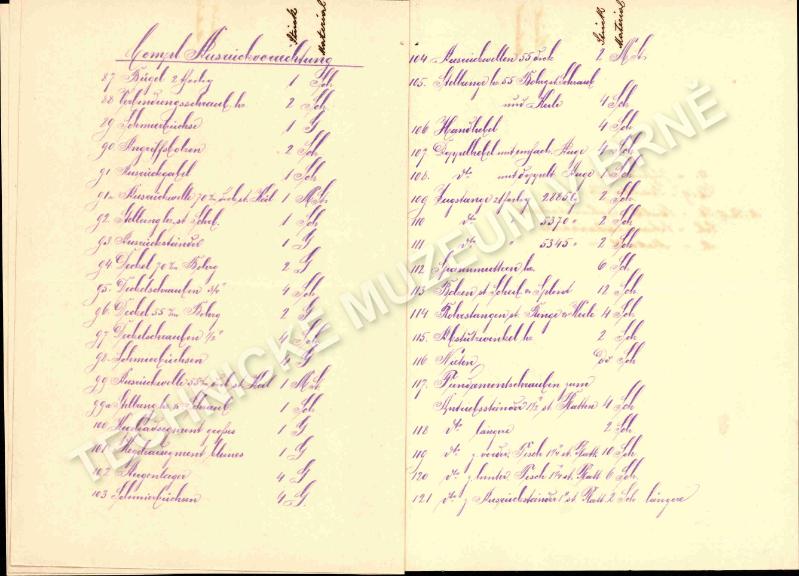 Stück Material
Compl Ausrückvorrichtung
87 Bügel 2 theilig 1 Sch
88 Verbindungsschraub. 2 Sch
89 Schmierbüchse 1 G
90 Angriffsbolzen 2 Sch
91 Ausrückgabel 1 Sch
91a Ausrückwelle 70 1 M.St.
92 Stellring 1 Sch
93 Ausrückständer 1 G
94 Deckel 70 m/m Bohrg 2 G
95 Deckelschrauben 3/4" 4 Sch
96 Deckel 55 m/m Bohrg 2 G
97 Deckelschrauben 1/2" 4 Sch
98 Schmierbüchsen G
99 Ausrückwelle 55 m/m 1 M.St.
99a Stellring 1 Sch
100 Kegelradsegment grosses 1 G
101 Kegelradsegment kleines 1 G
102 Augenlager 4 G
103 Schmierbüchsen 4 G
Stück Material
104 Ausrückwellen 55 2 M.St.
105. Stellringe 55 Bohrg st Schraub
und Keile 4 Sch
106 Handhebel 4 Sch
107 Doppelhebel mit einfach. Auge 4 Sch
108. dto mit doppelt. Auge 1 Sch
109 Zugstange 2 theilig 2885 lg 2 Sch
110 dto " 5370 " 2 Sch
111 dto " 5345 " 2 Sch
112 Spannmuttern 6 Sch
113 Bolzen st Scheib u Splint 12 Sch
114 Rohrstangen st Ringe u Keile 4 Sch
115. Abstützwinkel 2 Sch
116 Nieten Div Sch
117. Fundamentschrauben zum
Antriebsständer 1 1/2" st. Platten 4 Sch
118 dto längere 2 Sch
119 dto z vorder. Tisch st. Platt 10 Sch
120 dto z hinter. Tisch st. Platt 6 Sch
121 dto z Ausrückständer 1" st. Platt 2 Sch längere
TECHNICKÉ MUZEUM V BRNĚ